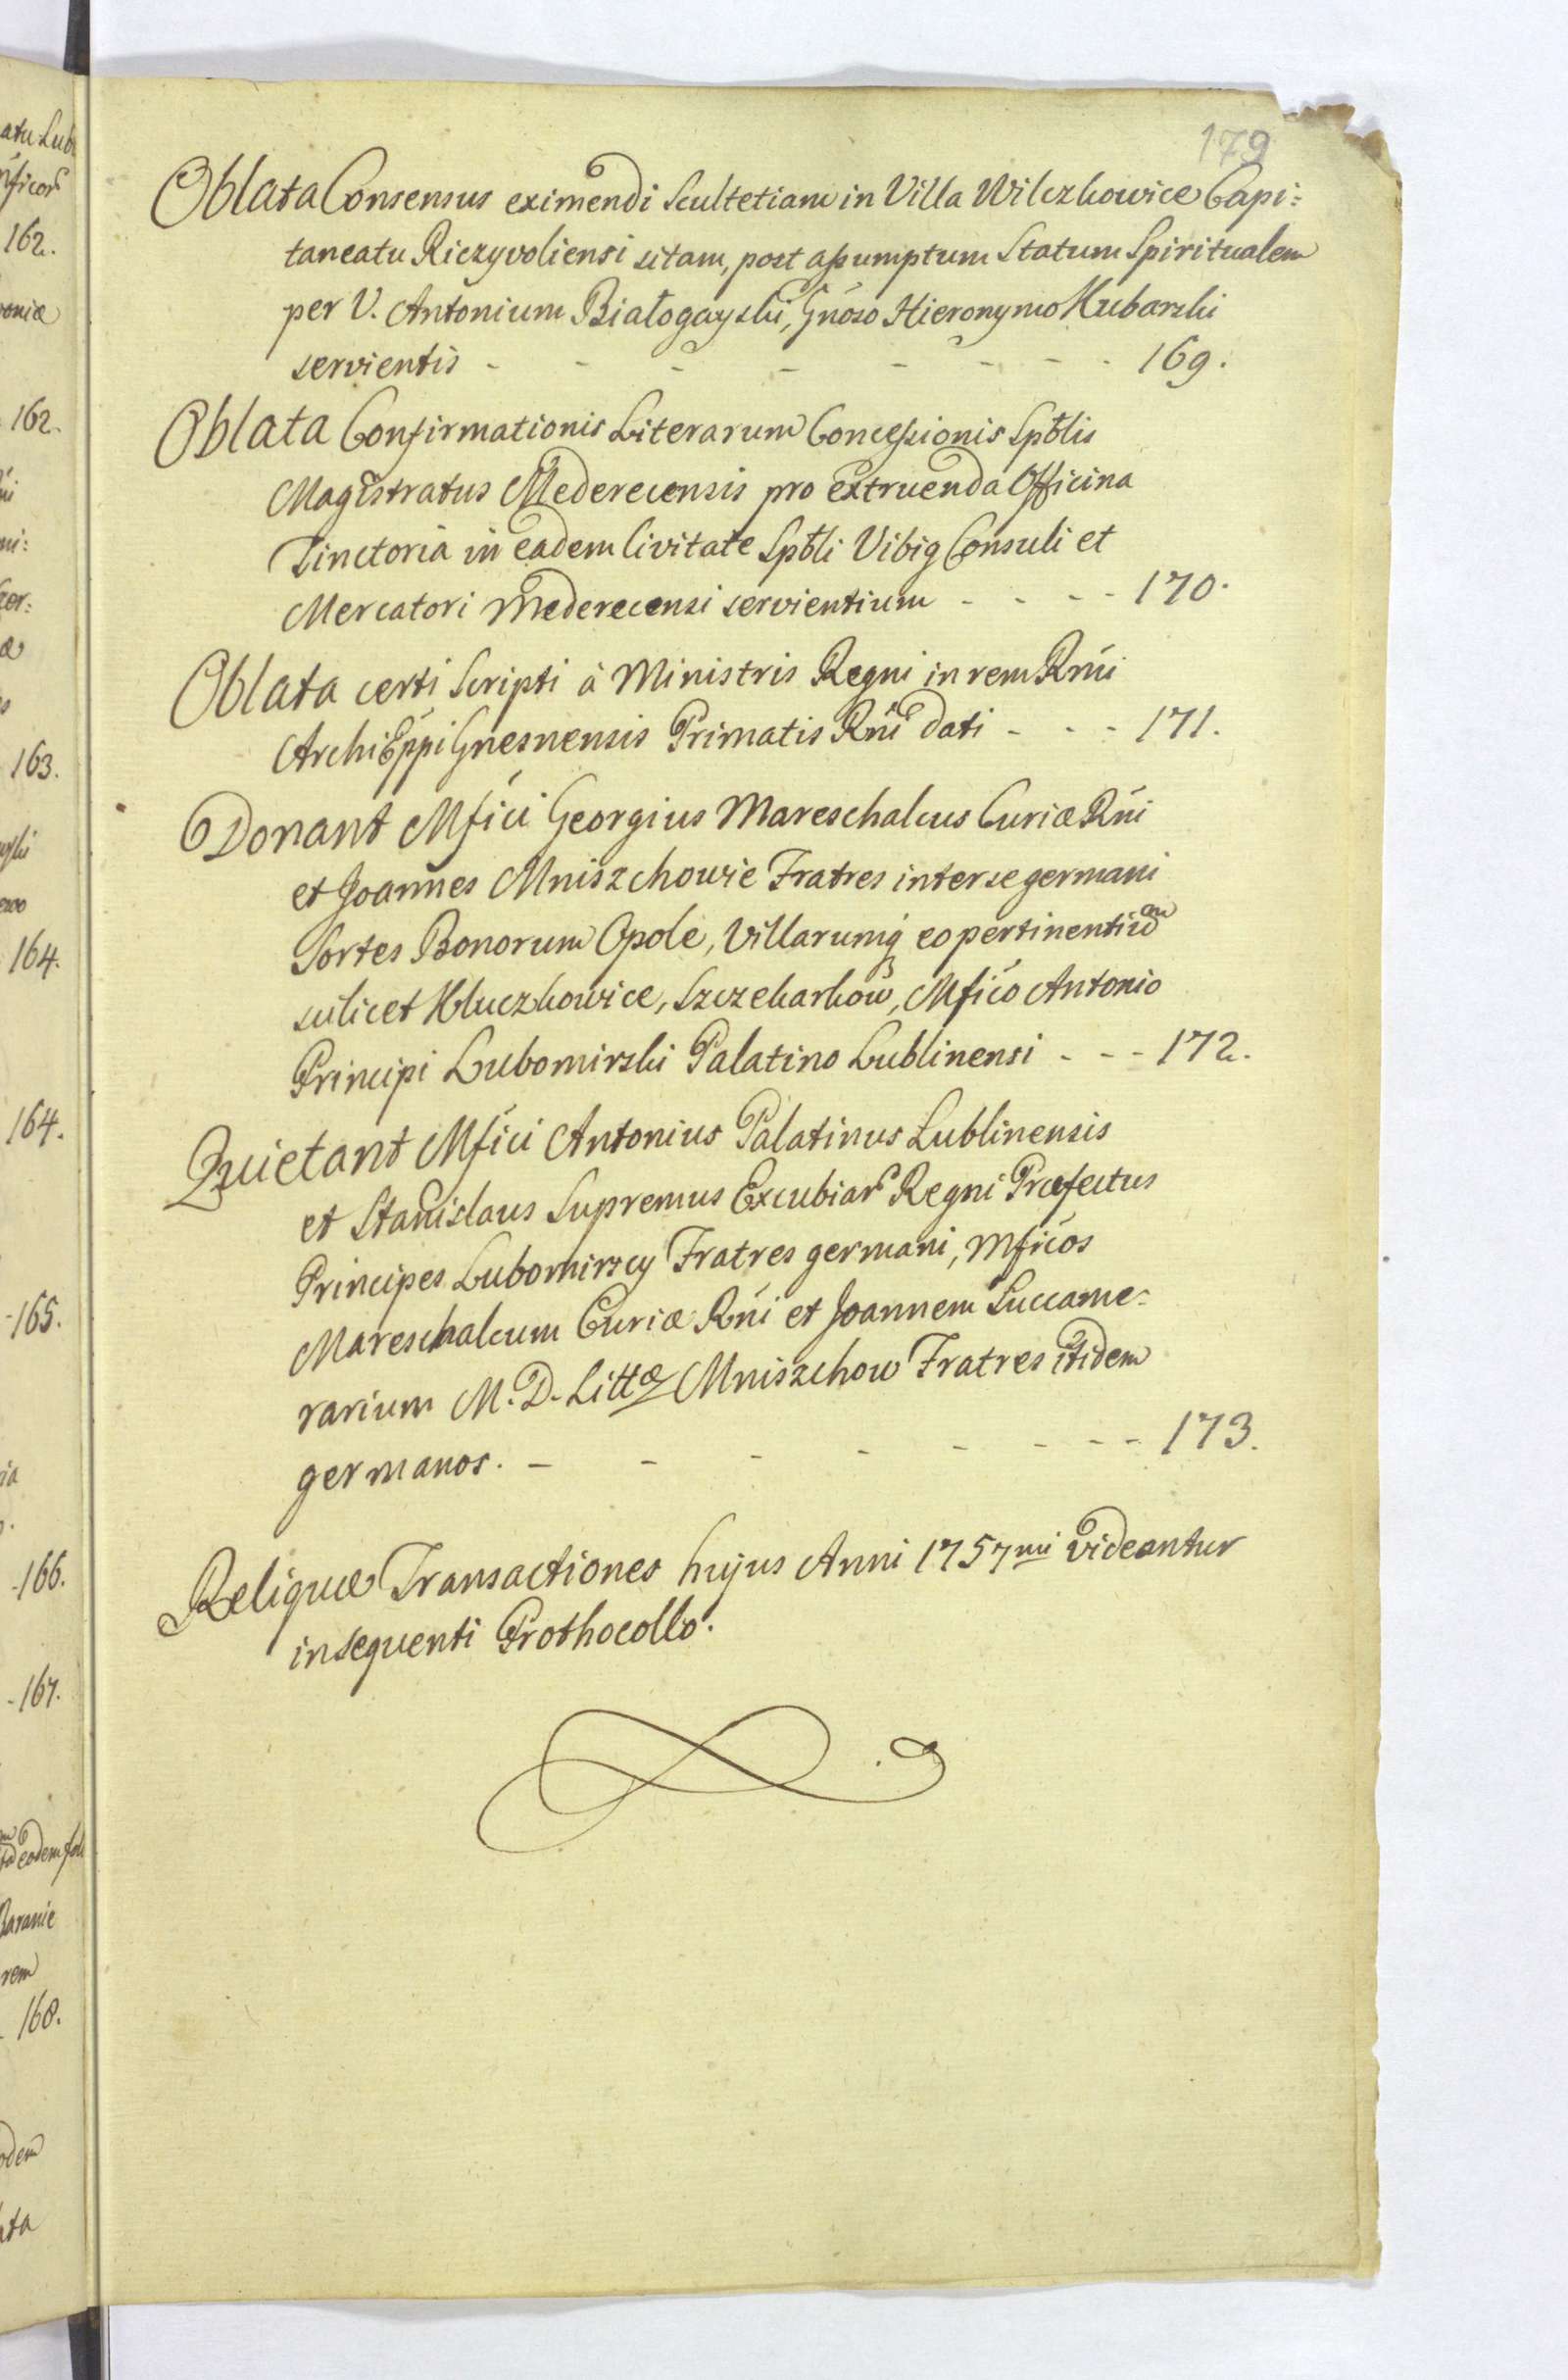 179
Oblata Consensus eximendi Scultetiam in Villa Wilczkowice Capi:
taneatu Riczyvoliensi sitam, post assumptum Statum Spiritualem
per V. Antonium Białogayski, Gnoso Hieronymo Kubarski
servientis - - - - - - - - 169.
Oblata Confirmationis Literarum Concessionis Spblis
Magistratus Mederecensis pro extruenda Officina
Tinctoria in eadem Civitate Spbli Vibig Consuli et
Mercatori Mederecensi servientium - - - - 170.
Oblata certi Scripti à Ministris Regni in rem Rmi
ArchiEppi Gnesnensis Primatis Rni dati - - - 171.
Donant Mfici Georgius Mareschalcus Curiæ Rni
et Joannes Mniszchowie Fratres inter se germani
Sortes Bonorum Opole, Villarumq eo pertinentium
scilicet Kluczkowice, Szczekarkow, Mfico Antonio
Principi Lubomirski Palatino Lublinensi - - - 172.
Quietant Mfici Antonius Palatinus Lublinensis
et Stanislaus Supremus Excubiar Regni Præfectus
Principes Lubomirscy Fratres germani, Mficos
Mareschalcum Curiæ Rni et Joannem Succame:
rarium M. D. Littæ Mniszchow Fratres itidem
germanos. - - - - - - - - 173.
Reliquæ Transactiones hujus Anni 1757mi videantur
in sequenti Prothocollo.
atu Lub
162.
162.
163.
164.
164.
165.
166.
167.
eodem
rem
168.